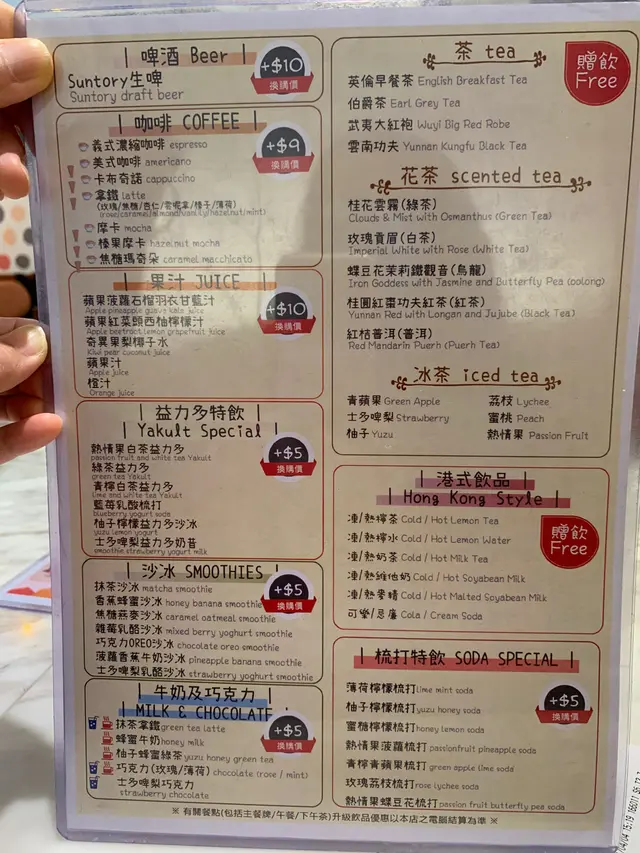 啤酒 Beer
+$10
換購價
Suntory生啤
Suntory draft beer
咖啡 COFFEE
+$9
換購價
義式濃縮咖啡 espresso
美式咖啡 americano
卡布奇諾 cappuccino
拿鐵 latte
(玫瑰/焦糖/杏仁/雲呢拿/榛子/薄荷)
(rose/caramel/almond/vanilly/hazelnut/mint)
摩卡 mocha
榛果摩卡 hazelnut mocha
焦糖瑪奇朵 caramel macchicato
果汁 JUICE
+$10
換購價
蘋果菠蘿石榴羽衣甘藍汁
Apple pineapple guava kale juice
蘋果紅菜頭西柚檸檬汁
Apple beetroot lemon grapefruit juice
奇異果梨椰子水
Kiwi pear coconut juice
蘋果汁
Apple juice
橙汁
Orange juice
益力多特飲
Yakult Special
+$5
換購價
熱情果白茶益力多
passion fruit and white tea Yakult
綠茶益力多
green tea Yakult
青檸白茶益力多
lime and white tea Yakult
藍莓乳酸梳打
blueberry yogurt soda
柚子檸檬益力多沙冰
yuzu lemon yogurt
士多啤梨益力多奶昔
smoothie strawberry yogurt milk
沙冰 SMOOTHIES
+$5
換購價
抹茶沙冰 matcha smoothie
香蕉蜂蜜沙冰 honey banana smoothie
焦糖燕麥沙冰 caramel oatmeal smoothie
雜莓乳酪沙冰 mixed berry yoghurt smoothie
巧克力OREO沙冰 chocolate oreo smoothie
菠蘿香蕉牛奶沙冰 pineapple banana smoothie
士多啤梨乳酪沙冰 strawberry yoghurt smoothie
牛奶及巧克力
MILK & CHOCOLATE
+$5
換購價
抹茶拿鐵 green tea latte
蜂蜜牛奶 honey milk
柚子蜂蜜綠茶 yuzu honey green tea
巧克力(玫瑰/薄荷) chocolate (rose / mint)
士多啤梨巧克力
strawberry chocolate
茶 tea
贈飲
Free
英倫早餐茶 English Breakfast Tea
伯爵茶 Earl Grey Tea
武夷大紅袍 Wuyi Big Red Robe
雲南功夫 Yunnan Kungfu Black Tea
花茶 scented tea
桂花雲霧(綠茶)
Clouds & Mist with Osmanthus (Green Tea)
玫瑰貢眉(白茶)
Imperial White with Rose (White Tea)
蝶豆花茉莉鐵觀音(烏龍)
Iron Goddess with Jasmine and Butterfly Pea (oolong)
桂圓紅棗功夫紅茶(紅茶)
Yunnan Red with Longan and Jujube (Black Tea)
紅桔普洱(普洱)
Red Mandarin Puerh (Puerh Tea)
冰茶 iced tea
青蘋果 Green Apple 荔枝 Lychee
士多啤梨 Strawberry 蜜桃 Peach
柚子 Yuzu 熱情果 Passion Fruit
港式飲品
Hong Kong Style
贈飲
Free
凍/熱檸茶 Cold / Hot Lemon Tea
凍/熱檸水 Cold / Hot Lemon Water
凍/熱奶茶 Cold / Hot Milk Tea
凍/熱維他奶 Cold / Hot Soyabean Milk
凍/熱麥精 Cold / Hot Malted Soyabean Milk
可樂/忌廉 Cola / Cream Soda
梳打特飲 SODA SPECIAL
+$5
換購價
薄荷檸檬梳打 lime mint soda
柚子檸檬梳打 yuzu honey soda
蜜糖檸檬梳打 honey lemon soda
熱情果菠蘿梳打 passionfruit pineapple soda
青檸青蘋果梳打 green apple lime soda
玫瑰荔枝梳打 rose lychee soda
熱情果蝶豆花梳打 passion fruit butterfly pea soda
※ 有關餐點(包括主餐牌/午餐/下午茶)升級飲品優惠以本店之電腦結算為準 ※